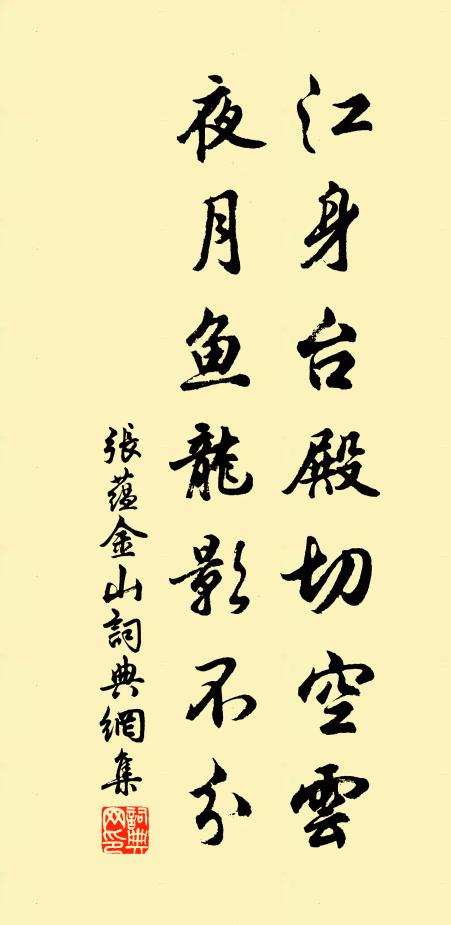 江身台殿切空雲
夜月鱼龍影不分
張蕴金山詞典網集
詞典網印